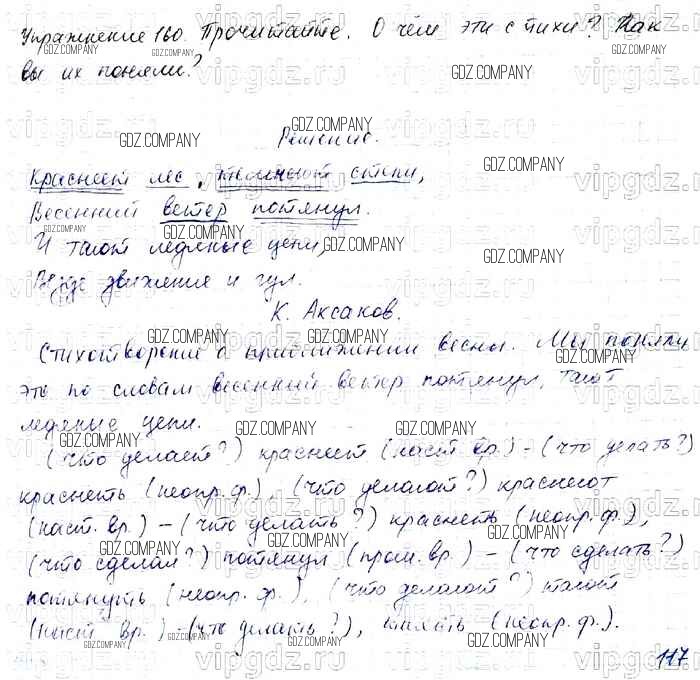 Упражнение 160. Прочитайте. О чём эти стихи? Как
вы их поняли?
Решение.
Краснеет лес, темнеют степи,
Весенний ветер потянул.
И тают ледяные цепи,
Везде движение и гул.
К. Аксаков.
Стихотворение о приближении весны. Мы поняли
это по словам весенний ветер потянул, тают
ледяные цепи.
(что делает?) краснеет (наст. вр.) – (что делать?)
краснеть (неопр. ф.), (что делают?) краснеют
(наст. вр.) – (что делать?) краснеть (неопр. ф.),
(что сделал?) потянул (прош. вр.) – (что сделать?)
потянуть (неопр. ф.), (что делают?) тают
(наст. вр.) – (что делать?), таять (неопр. ф.).
117
GDZ.COMPANY
vipgdz.ru